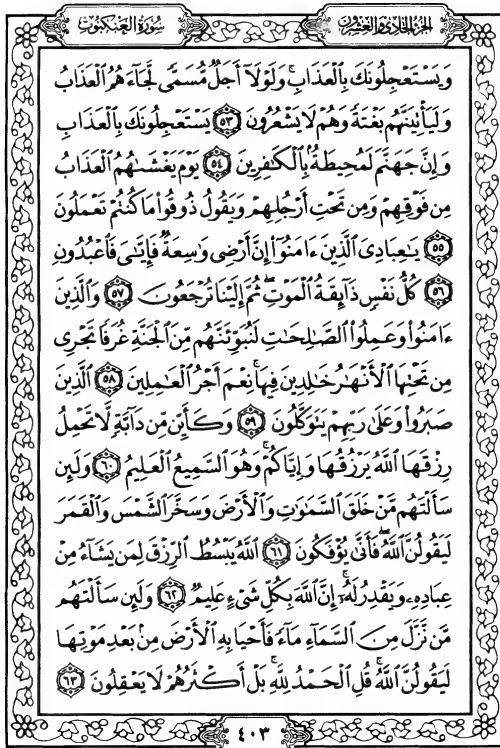 الجزء الحادي والعشرون
سورة العنكبوت
وَيَسْتَعْجِلُونَكَ بِالْعَذَابِ ۚ وَلَوْلَآ أَجَلٌ مُّسَمًّى لَّجَآءَهُمُ الْعَذَابُ
وَلَيَأْتِيَنَّهُم بَغْتَةً وَهُمْ لَا يَشْعُرُونَ ٥٣ يَسْتَعْجِلُونَكَ بِالْعَذَابِ
وَإِنَّ جَهَنَّمَ لَمُحِيطَةٌۢ بِالْكَٰفِرِينَ ٥٤ يَوْمَ يَغْشَىٰهُمُ الْعَذَابُ
مِن فَوْقِهِمْ وَمِن تَحْتِ أَرْجُلِهِمْ وَيَقُولُ ذُوقُوا۟ مَا كُنتُمْ تَعْمَلُونَ
٥٥ يَٰعِبَادِىَ الَّذِينَ ءَامَنُوٓا۟ إِنَّ أَرْضِى وَٰسِعَةٌ فَإِيَّٰىَ فَاعْبُدُونِ
٥٦ كُلُّ نَفْسٍ ذَآئِقَةُ الْمَوْتِ ۖ ثُمَّ إِلَيْنَا تُرْجَعُونَ ٥٧ وَالَّذِينَ
ءَامَنُوا۟ وَعَمِلُوا۟ الصَّٰلِحَٰتِ لَنُبَوِّئَنَّهُم مِّنَ الْجَنَّةِ غُرَفًا تَجْرِى
مِن تَحْتِهَا الْأَنْهَٰرُ خَٰلِدِينَ فِيهَا ۚ نِعْمَ أَجْرُ الْعَٰمِلِينَ ٥٨ الَّذِينَ
صَبَرُوا۟ وَعَلَىٰ رَبِّهِمْ يَتَوَكَّلُونَ ٥٩ وَكَأَيِّن مِّن دَآبَّةٍ لَّا تَحْمِلُ
رِزْقَهَا اللَّهُ يَرْزُقُهَا وَإِيَّاكُمْ ۚ وَهُوَ السَّمِيعُ الْعَلِيمُ ٦٠ وَلَئِن
سَأَلْتَهُم مَّنْ خَلَقَ السَّمَٰوَٰتِ وَالْأَرْضَ وَسَخَّرَ الشَّمْسَ وَالْقَمَرَ
لَيَقُولُنَّ اللَّهُ ۖ فَأَنَّىٰ يُؤْفَكُونَ ٦١ اللَّهُ يَبْسُطُ الرِّزْقَ لِمَن يَشَآءُ مِنْ
عِبَادِهِۦ وَيَقْدِرُ لَهُۥٓ ۚ إِنَّ اللَّهَ بِكُلِّ شَىْءٍ عَلِيمٌ ٦٢ وَلَئِن سَأَلْتَهُم
مَّن نَّزَّلَ مِنَ السَّمَآءِ مَآءً فَأَحْيَا بِهِ الْأَرْضَ مِنۢ بَعْدِ مَوْتِهَا
لَيَقُولُنَّ اللَّهُ ۚ قُلِ الْحَمْدُ لِلَّهِ ۚ بَلْ أَكْثَرُهُمْ لَا يَعْقِلُونَ ٦٣
٤٠٣